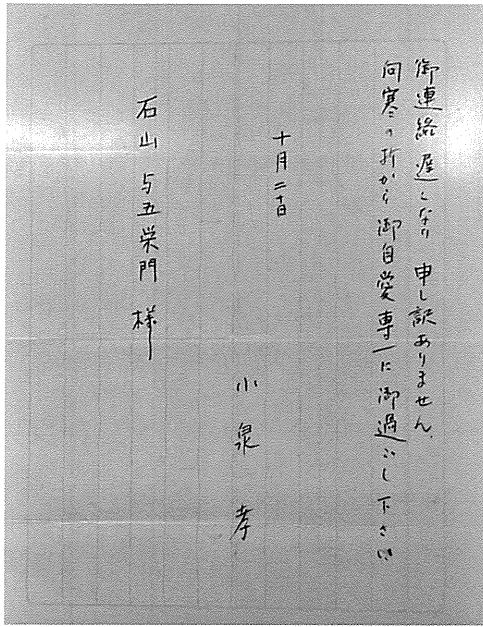 御連絡遅くなり 申し訳ありません。
向寒の折から御自愛専一に御過ごし下さい
十月二十日
小泉 孝
石山 与五栄門 様